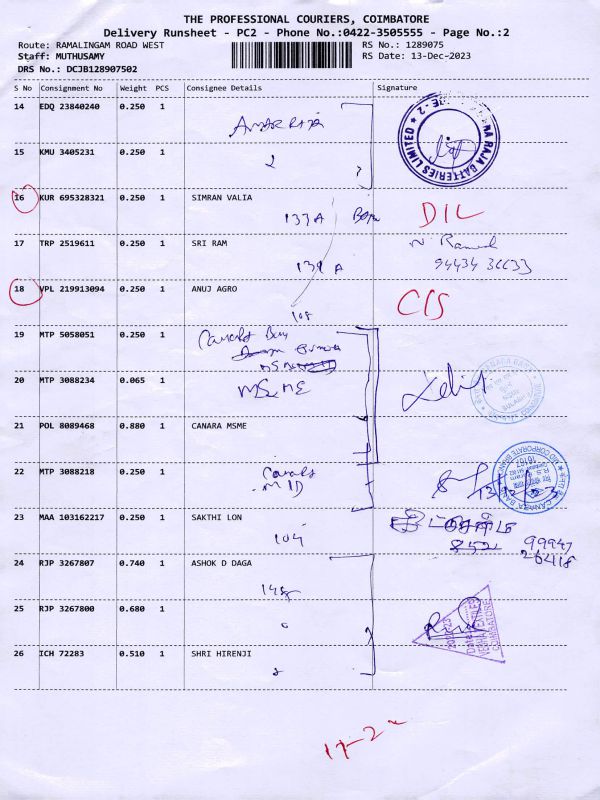 THE PROFESSIONAL COURIERS, COIMBATORE
Delivery Runsheet - PC2 - Phone No.:0422-3505555 - Page No.:2
Route: RAMALINGAM ROAD WEST RS No.: 1289075
Staff: MUTHUSAMY RS Date: 13-Dec-2023
DRS No.: DCJB128907502
S No Consignment No Weight PCS Consignee Details Signature
14 EDQ 23840240 0.250 1
15 KMU 3405231 0.250 1
16 KUR 695328321 0.250 1 SIMRAN VALIA
137A DIL
17 TRP 2519611 0.250 1 SRI RAM
139 A 94434 36633
18 VPL 219913094 0.250 1 ANUJ AGRO
108 CIS
19 MTP 5058051 0.250 1
20 MTP 3088234 0.065 1
MSME
21 POL 8089468 0.880 1 CANARA MSME
22 MTP 3088218 0.250 1
MID
23 MAA 103162217 0.250 1 SAKTHI LON
104 99947
26418
24 RJP 3267807 0.740 1 ASHOK D DAGA
148
25 RJP 3267800 0.680 1
26 ICH 72283 0.510 1 SHRI HIRENJI
17-2